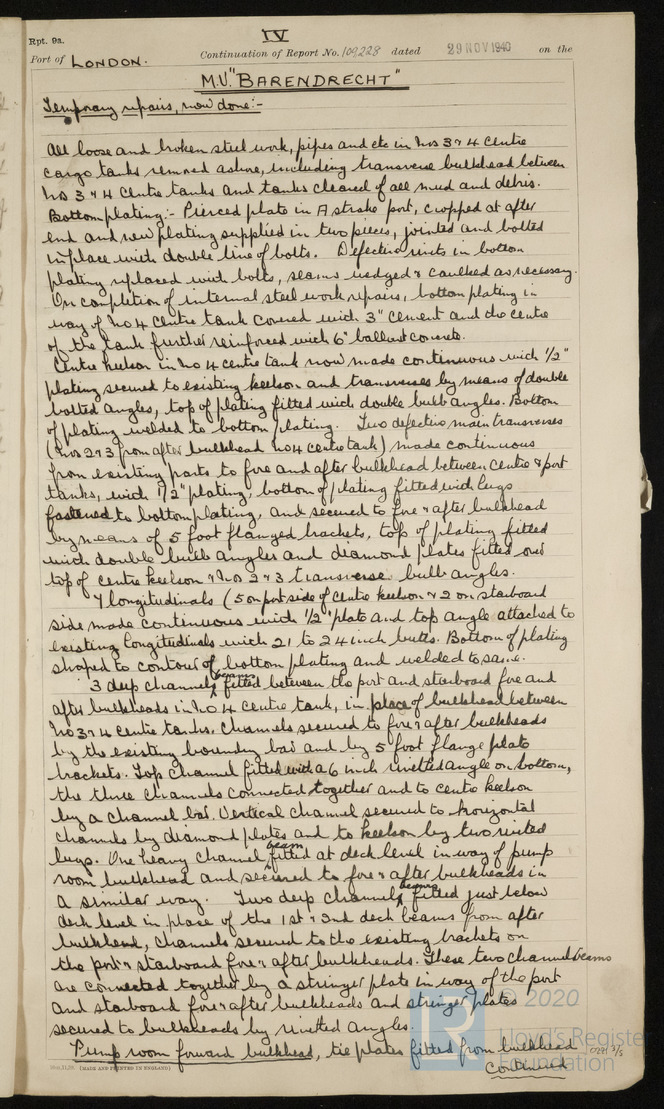 IV
Rpt. 9a.
Continuation of Report No. 109228 dated 29 NOV 1940 on the
Port of LONDON.
M.V. "BARENDRECHT"
Temporary repairs, now done:-
All loose and broken steel work, pipes and etc in Nos 3 & 4 Centre
cargo tanks removed ashore, including transverse bulkhead between
Nos 3 & 4 Centre tanks and tanks cleaned of all mud and debris.
Bottom plating:- Pierced plate in A strake port, cropped at after
end and new plating supplied in two pieces, jointed and bolted
in place with double line of bolts. Defective rivets in bottom
plating replaced with bolts, seams wedged & caulked as necessary.
On completion of internal steel work repairs, bottom plating in
way of No 4 Centre tank covered with 3" cement and the centre
of the tank further reinforced with 6" ballast concrete.
Centre keelson in No 4 centre tank now made continuous with 1/2"
plating secured to existing keelson and transverses by means of double
bolted angles, top of plating fitted with double bulb angles. Bottom
of plating welded to bottom plating. Two defective main transverses
(Nos 2 & 3 from after bulkhead No 4 centre tank) made continuous
from existing parts to fore and after bulkhead between centre & port
tanks, with 1/2" plating, bottom of plating fitted with lugs
fastened to bottom plating, and secured to fore & after bulkhead
by means of 5 foot flanged brackets, top of plating fitted
with double bulb angles and diamond plates fitted over
top of centre keelson & Nos 2 & 3 transverse bulb angles.
7 longitudinals (5 on port side of Centre keelson & 2 on starboard
side made continuous with 1/2" plate and top angle attached to
existing longitudinals with 21 to 24 inch butts. Bottom of plating
shaped to contour of bottom plating and welded to same.
3 deep channel beams fitted between the port and starboard fore and
after bulkheads in No 4 centre tank, in place of bulkhead between
No 3 & 4 centre tanks. Channels secured to fore & after bulkheads
by the existing boundary bar and by 5 foot flange plate
brackets. Top channel fitted with a 6 inch rivetted angle on bottom,
the three channels connected together and to centre keelson
by a channel bar. Vertical channel secured to horizontal
channels by diamond plates and to keelson by two rivetted
lugs. One heavy channel beam fitted at deck level in way of pump
room bulkhead and secured to fore & after bulkheads in
a similar way. Two deep channel beams fitted just below
deck level in place of the 1st & 3rd deck beams from after
bulkhead, channels secured to the existing brackets on
the port & starboard fore & after bulkheads. These two channel beams
are connected together by a stringer plate in way of the port
and starboard fore & after bulkheads and stringer plates
secured to bulkheads by rivetted angles.
Pump room forward bulkhead, tie plates fitted from bulkhead
continued
(MADE AND PRINTED IN ENGLAND)
© 2020
Lloyd's Register
Foundation
LR